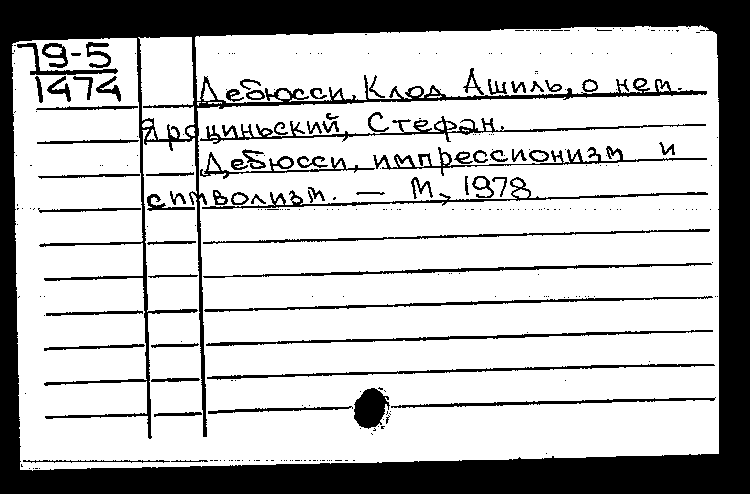 79-5
1474
Дебюсси, Клод Ашиль, о нем.
Яроциньский, Стефан.
Дебюсси, импрессионизм и
символизм. — М., 1978